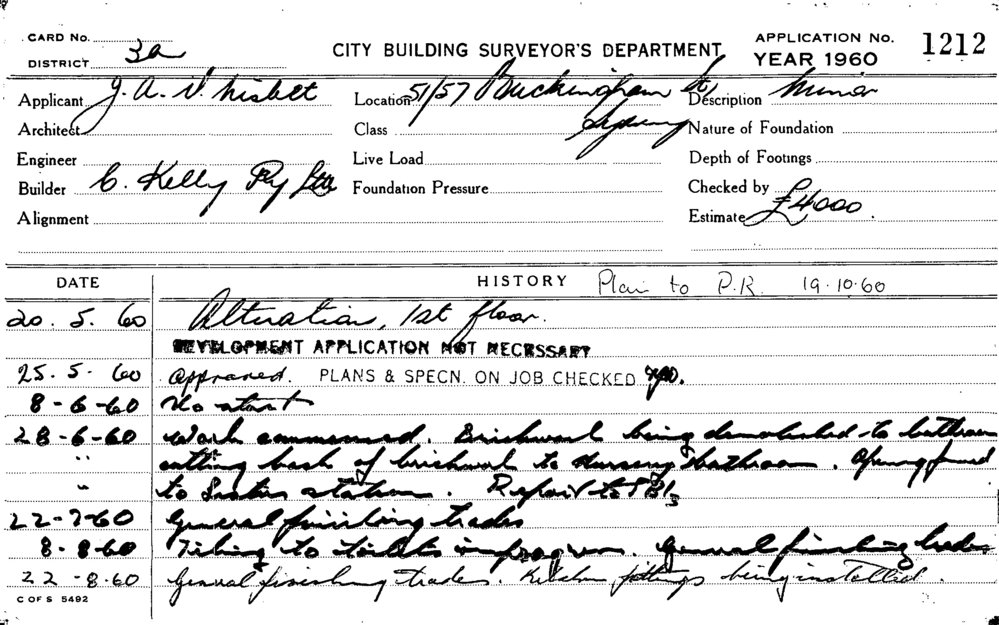 CARD No.
DISTRICT 3a
CITY BUILDING SURVEYOR'S DEPARTMENT
APPLICATION No. 1212
YEAR 1960
Applicant J. A. V. Nisbet
Location 51/57 Buckingham St, Sydney
Description Minor
Architect
Class
Nature of Foundation
Engineer
Live Load
Depth of Footings
Builder C. Kelly Pty Ltd
Foundation Pressure
Checked by
Alignment
Estimate £4000.
DATE HISTORY Plan to P.R. 19.10.60
20. 5. 60 Alteration, 1st floor.
DEVELOPMENT APPLICATION NOT NECESSARY
25. 5. 60 Approved. PLANS & SPECN. ON JOB CHECKED
8-6-60 No start
28-6-60 Work commenced. Brickwork being demolished to bathroom
" cutting back of brickwork to nursing bathroom. Opening
" to Sisters station. Report to
22-7-60 General finishing trades
8-8-60 Tiling to toilets in progress. General finishing trades
22-8-60 General finishing trades. Kitchen fittings being installed.
C OF S 5492